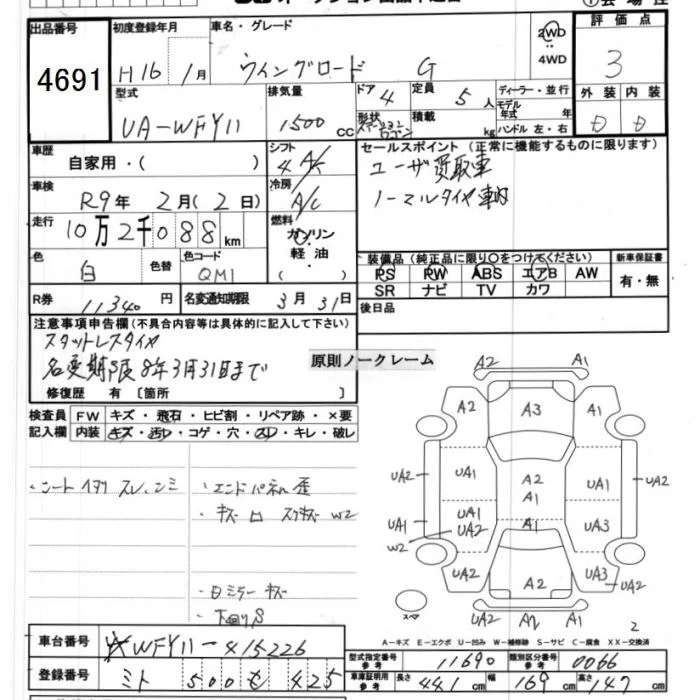 出品番号
4691
初度登録年月
H16年 1月
車名・グレード
ウイングロード G
2WD
4WD
評価点
3
型式
UA-WFY11
排気量
1500 CC
ドア
4
定員
5人
形状
ステーションワゴン
積載
kg
ディーラー・並行
モデル年式 年
ハンドル 左・右
外装
D
内装
D
車歴
自家用・( )
シフト
4 A/
セールスポイント (正常に機能するものに限ります)
ユーザ買取車
ノーマルタイヤ車内
車検
R9年 2月(2日)
冷房
A/C
走行
10万2千088km
燃料
ガソリン
軽油・
( )
色
白
色替
色コード
QM1
装備品(純正品に限り○をつけてください)
PS PW ABS エアB AW
SR ナビ TV カワ
新車保証書
有・無
R券
11340円
名変通知期限
3月31日
後日品
注意事項申告欄(不具合内容等は具体的に記入して下さい)
スタットレスタイヤ
名変期限8年3月31日まで
修復歴 有 [箇所 ]
原則ノークレーム
検査員記入欄
FW キズ・飛石・ヒビ割・リペア跡・×要
内装 キズ・汚レ・コゲ・穴・スレ・キレ・破レ
・シートイタク スレ、シミ
・エンドパネル歪
・キズ ロ スリキズ W2
・白ミラー キズ
・下回りS
A2 A1
A2 A3 A1
UA2 UA1 A2 UA1 UA2
A1
UA1 UA1 A1 UA3
W2 UA2
UA2 A2 UA3 UA2
UA2 A2 A1
スペア
2
A-キズ E-エクボ U-凹み W-補修跡 S-サビ C-腐食 XX-交換済
車台番号
WFY11-415226
登録番号
ミト 500 そ 425
型式指定番号 参考
11690
類別区分番号 参考
0066
車庫証明用 参考
長さ 441cm 幅 169cm 高さ 147cm